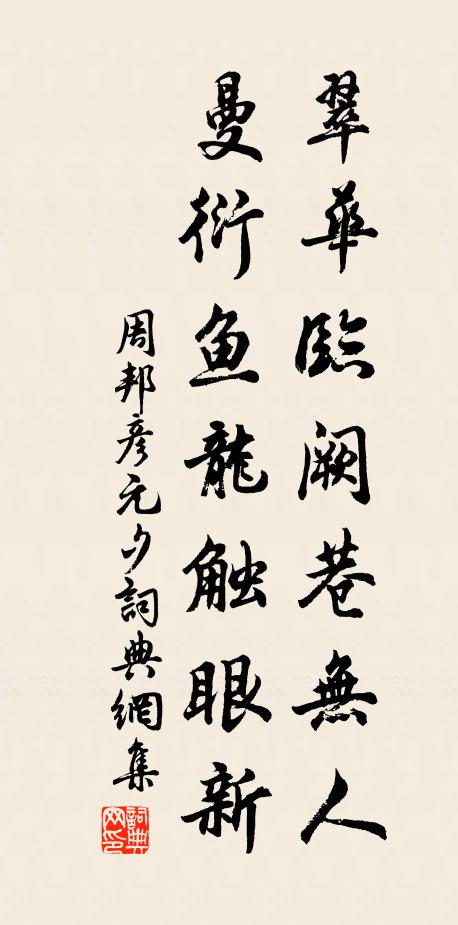 翠華臨闕巷無人
曼衍鱼龍触眼新
周邦彦元夕詞典網集
詞典网印